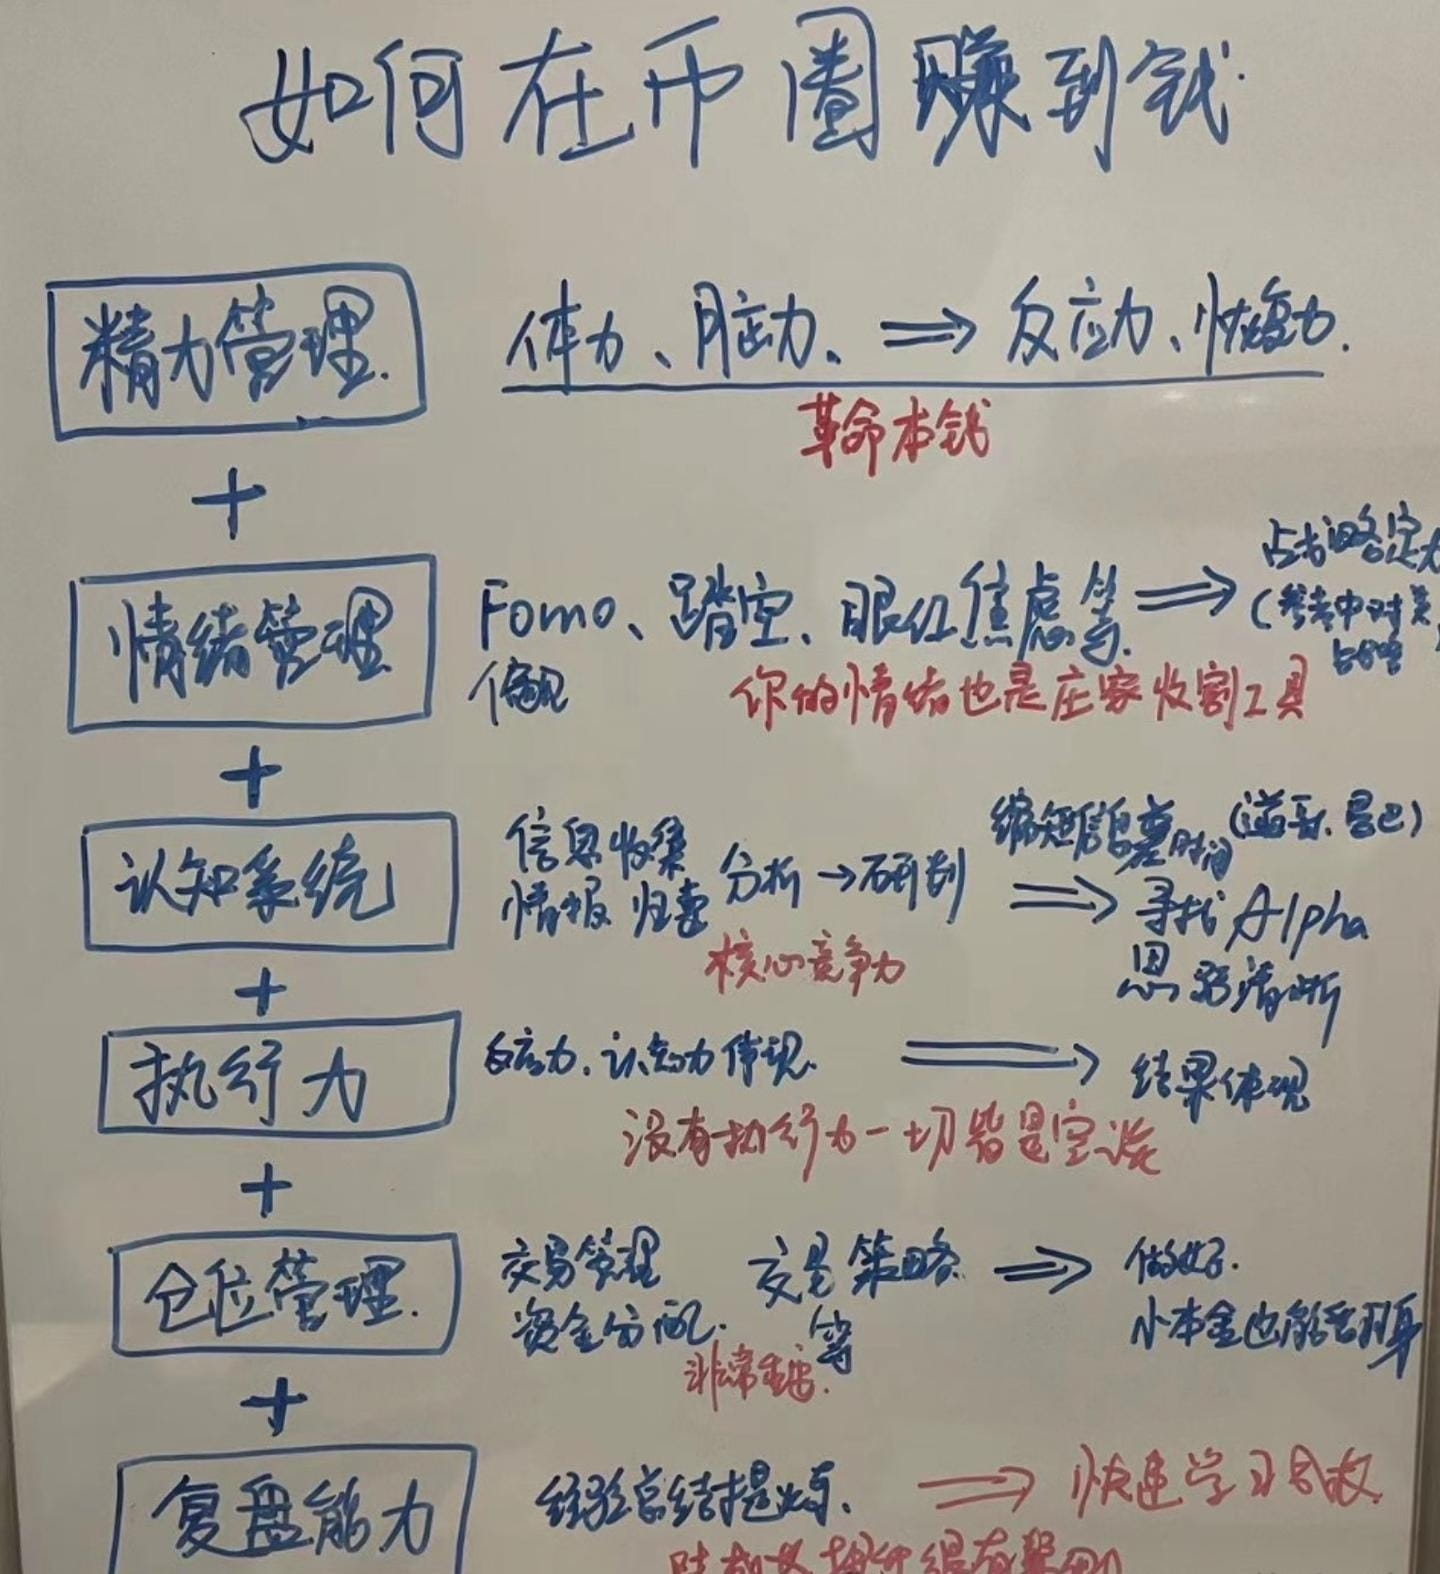 如何在币圈赚到钱
精力管理
体力、脑力、⇒ 反应力、恢复力.
革命本钱
+
情绪管理
Fomo、踏空、眼红焦虑等. ⇒ 战略定力
偏见
(参考中对美
战略
你的情绪也是庄家收割工具
+
认知系统
信息收集
情报 归纳
分析 → 研判 ⇒
核心竞争力
缩短信息差时间
寻找Alpha
思路清晰
+
执行力
反应力、认知力体现. ⇒ 结果体现
没有执行力一切皆是空谈
+
仓位管理.
交易管理
资金分配.
交易策略
等
⇒ 做好.
小本金也能翻身
非常重要.
+
复盘能力
经验总结提炼、⇒ 快速学习